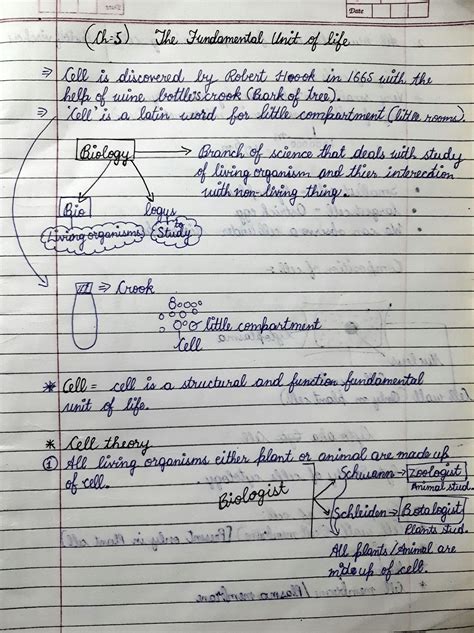 Date
(Ch=5) The Fundamental Unit of life
⇒ Cell is discovered by Robert Hoook in 1665 with the
help of wine bottle's crook (Bark of tree).
⇒ 'Cell' is a latin word for little compartment (little rooms).
Biology → Branch of science that deals with study
of living organism and thier interection
with non-living thing.
Bio logus
Living organisms to Study
⇒ Crook
little compartment
Cell
* Cell = cell is a structural and function fundamental
unit of life.
* Cell theory
① All living organisms either plant or animal are made up
of cell.
Biologist
Schwann → Zoologist
Animal stud.
Schleiden → Botalogist
Plants stud.
All plants/Animal are
made up of cell.